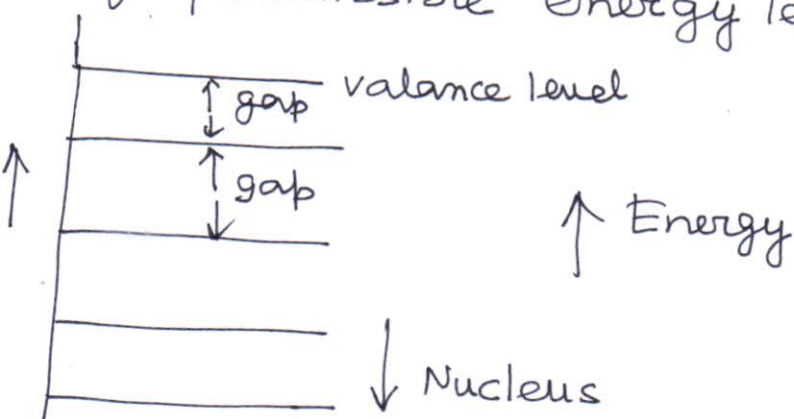 Energy le
valance level
gap
gap
Energy
Nucleus